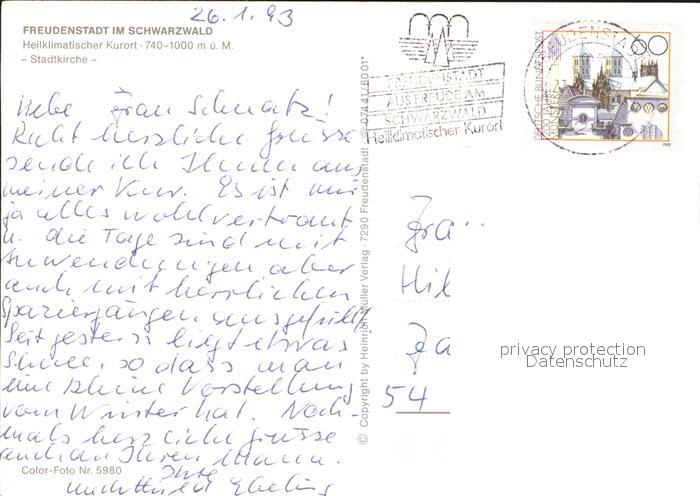 26.1.93
FREUDENSTADT IM SCHWARZWALD
Heilklimatischer Kurort · 740-1000 m ü. M.
- Stadtkirche -
Liebe Frau Schmatz!
Recht herzliche Grüsse
sende ich Ihnen aus
meiner Kur. Es ist mir
ja alles wohlvertraut
u. die Tage sind mit
Anwendungen aber
auch mit herrlichen
Spaziergängen ausgefüllt
Seit gestern liegt etwas
Schnee, so dass man
eine kleine Vorstellung
vom Winter hat. Noch-
mals herzliche Grüsse
auch an Ihren Mann.
Ihre
Ebeling
Color-Foto Nr. 5980
© Copyright by Heinrich Müller Verlag · 7290 Freudenstadt 07441/6001*
FREUDENSTADT
AUS FREUDE AM
SCHWARZWALD
Heilklimatischer Kurort
FREUDENSTADT
60
DEUTSCHE BUNDESPOST
1993
Fra
Hil
Fa
54
privacy protection
Datenschutz